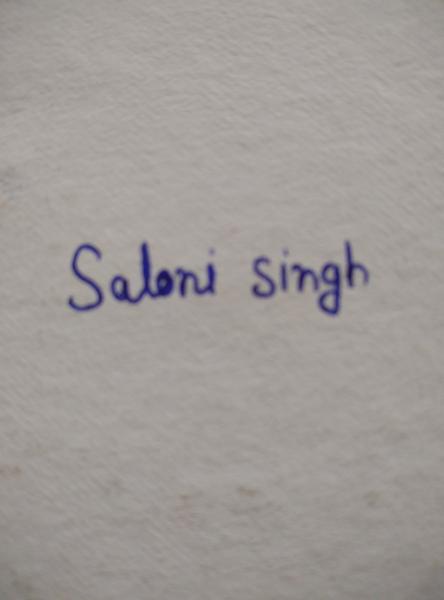 Saloni singh